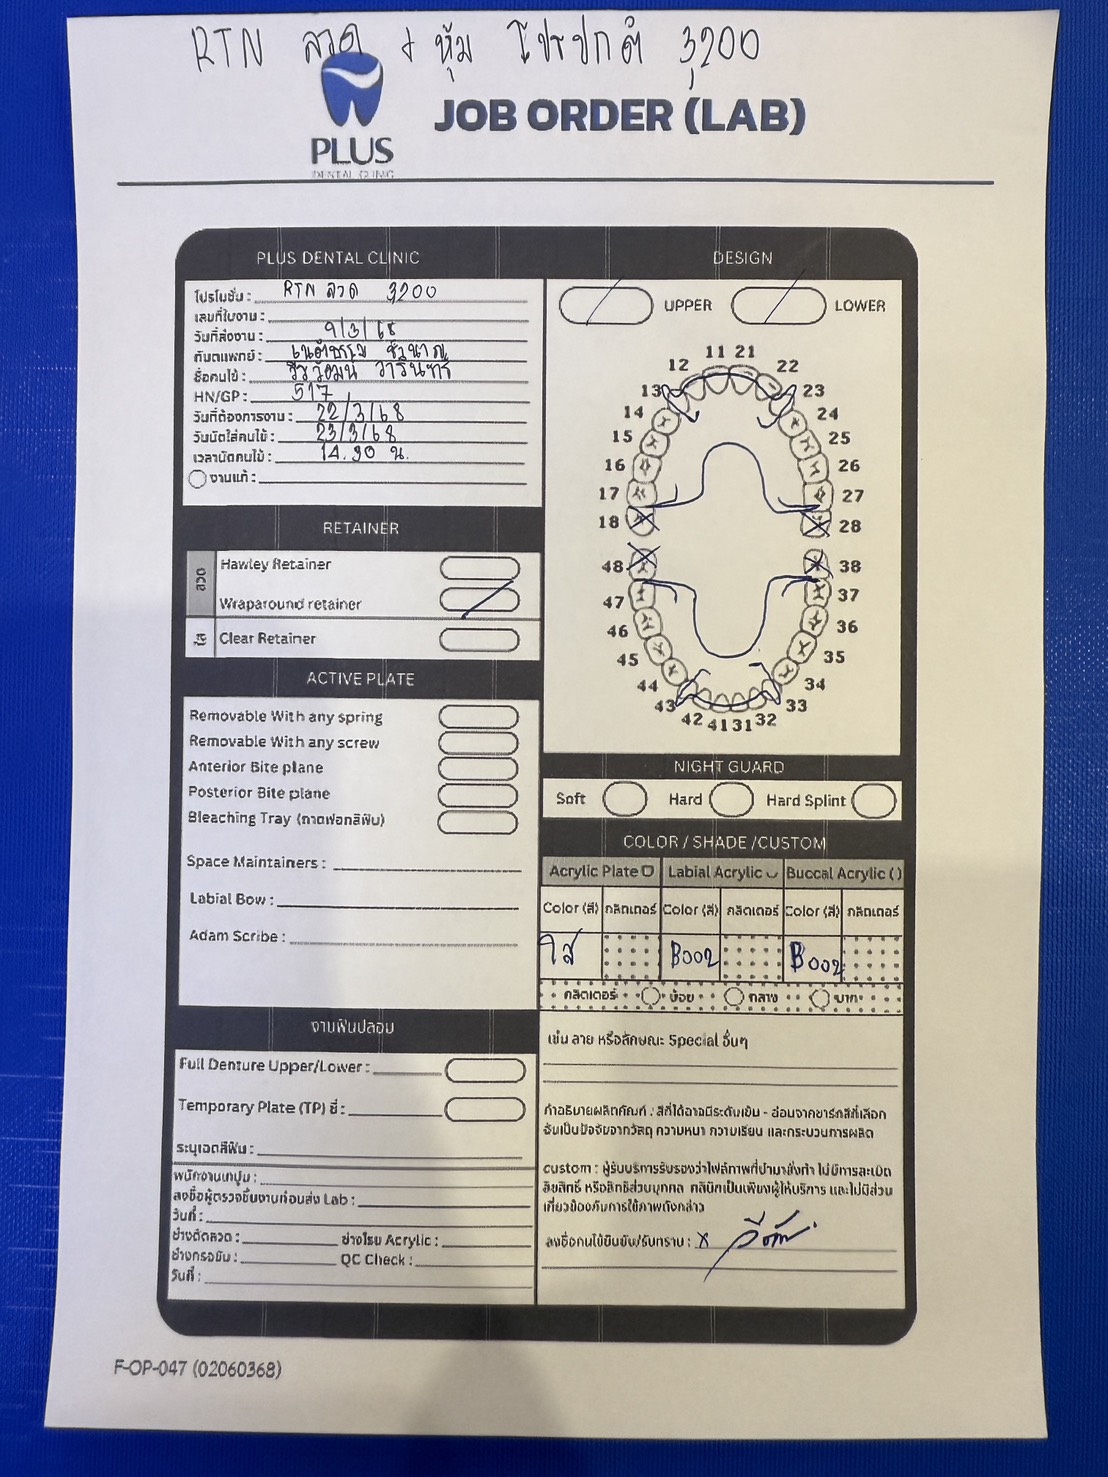 RTN ลวด + หุ้ม โปรปกติ 3,200
PLUS
DENTAL CLINIC
JOB ORDER (LAB)
PLUS DENTAL CLINIC
โปรโมชั่น : RTN ลวด 3,200
เลขที่ใบงาน :
วันที่ส่งงาน : 9/3/68
ทันตแพทย์ :
ชื่อคนไข้ :
HN/GP : 517
วันที่ต้องการงาน : 22/3/68
วันนัดใส่คนไข้ : 23/3/68
เวลานัดคนไข้ : 14.30 น.
งานแก้ :
RETAINER
ลวด
Hawley Retainer
Wraparound retainer
ใส
Clear Retainer
ACTIVE PLATE
Removable With any spring
Removable With any screw
Anterior Bite plane
Posterior Bite plane
Bleaching Tray (ถาดฟอกสีฟัน)
Space Maintainers :
Labial Bow :
Adam Scribe :
งานฟันปลอม
Full Denture Upper/Lower :
Temporary Plate (TP) ซี่ :
ระบุเฉดสีฟัน :
พนักงานเทปูน :
ลงชื่อผู้ตรวจชิ้นงานก่อนส่ง Lab :
วันที่ :
ช่างดัดลวด : ช่างโรย Acrylic :
ช่างกรอขัด : QC Check :
วันที่ :
DESIGN
UPPER LOWER
11 21
12 22
13 23
14 24
15 25
16 26
17 27
18 28
48 38
47 37
46 36
45 35
44 34
43 33
42 41 31 32
NIGHT GUARD
Soft Hard Hard Splint
COLOR / SHADE /CUSTOM
Acrylic Plate Labial Acrylic Buccal Acrylic ( )
Color (สี) กลิตเตอร์ Color (สี) กลิตเตอร์ Color (สี) กลิตเตอร์
ใส B002 B002
กลิตเตอร์ น้อย กลาง มาก
เช่น ลาย หรือลักษณะ Special อื่นๆ
คำอธิบายผลิตภัณฑ์ : สีที่ได้อาจมีระดับเข้ม - อ่อนจากชาร์ทสีที่เลือก
อันเป็นปัจจัยจากวัสดุ ความหนา ความเรียบ และกระบวนการผลิต
custom : ผู้รับบริการรับรองว่าไฟล์ภาพที่นำมาสั่งทำ ไม่มีการละเมิด
ลิขสิทธิ์ หรือสิทธิส่วนบุคคล คลินิกเป็นเพียงผู้ให้บริการ และไม่มีส่วน
เกี่ยวข้องกับการใช้ภาพดังกล่าว
ลงชื่อคนไข้ยืนยัน/รับทราบ : x
F-OP-047 (02060368)